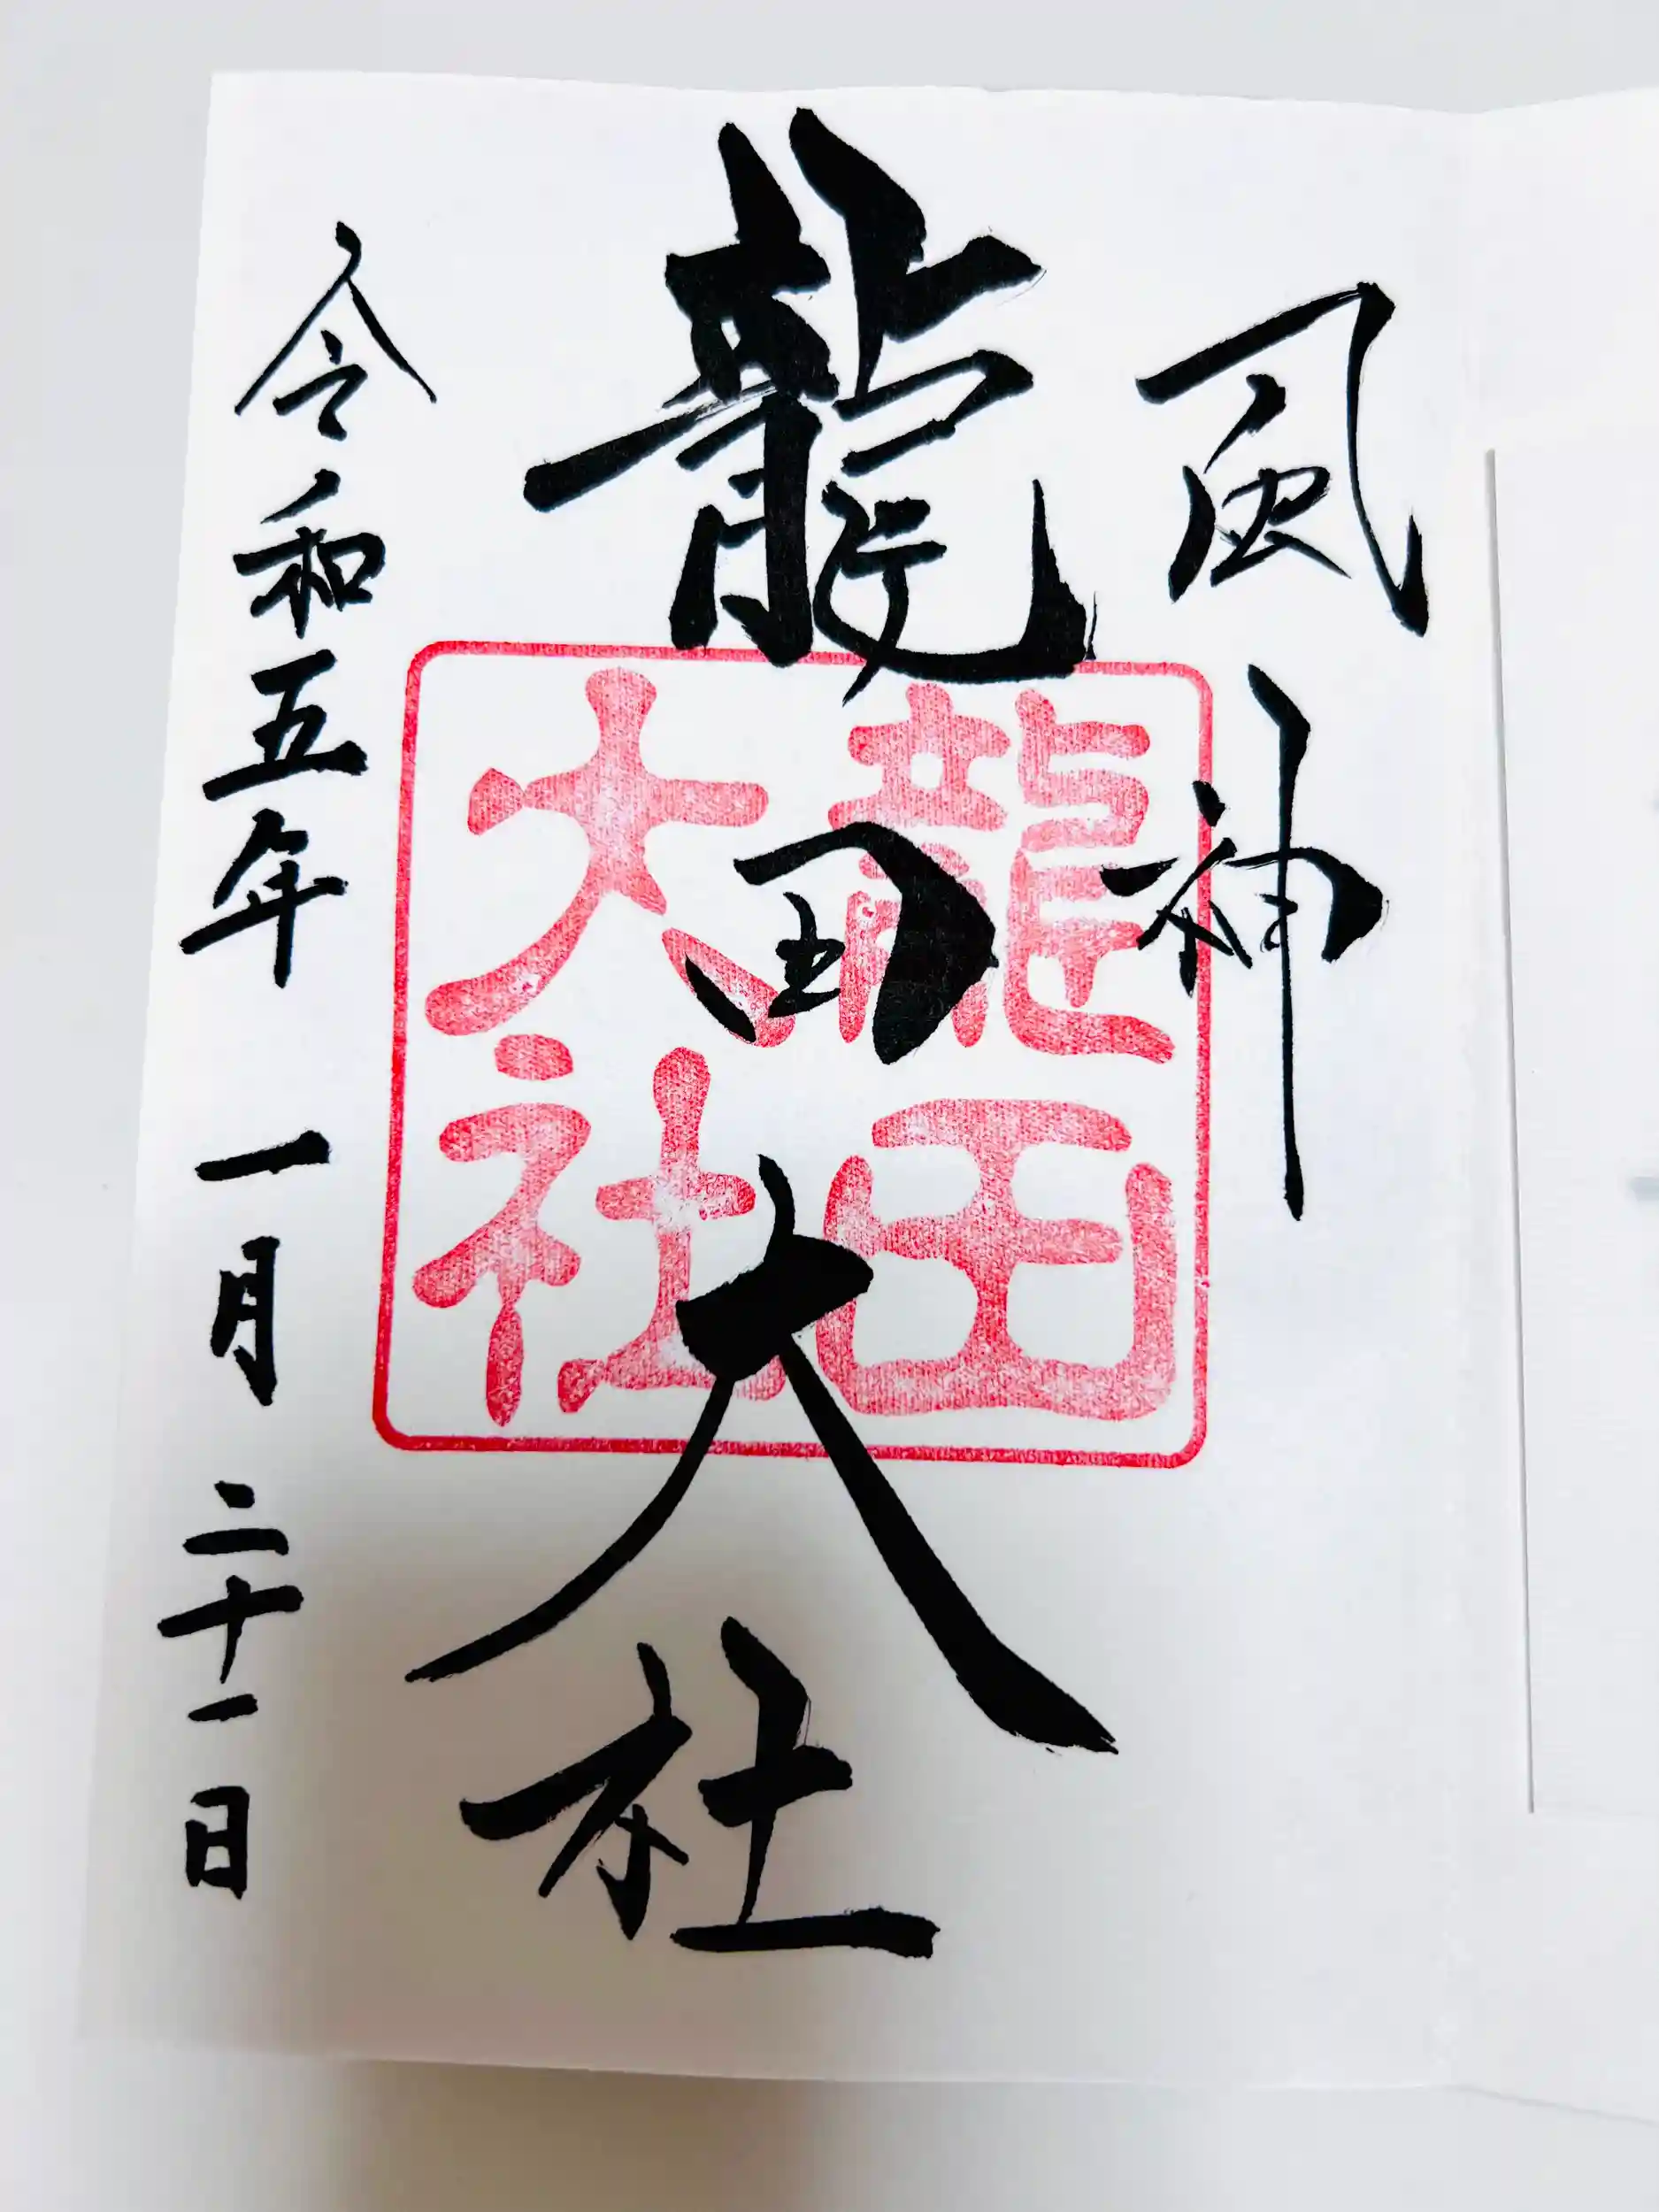 風神
龍田大社
龍田
大社
令和五年一月二十一日